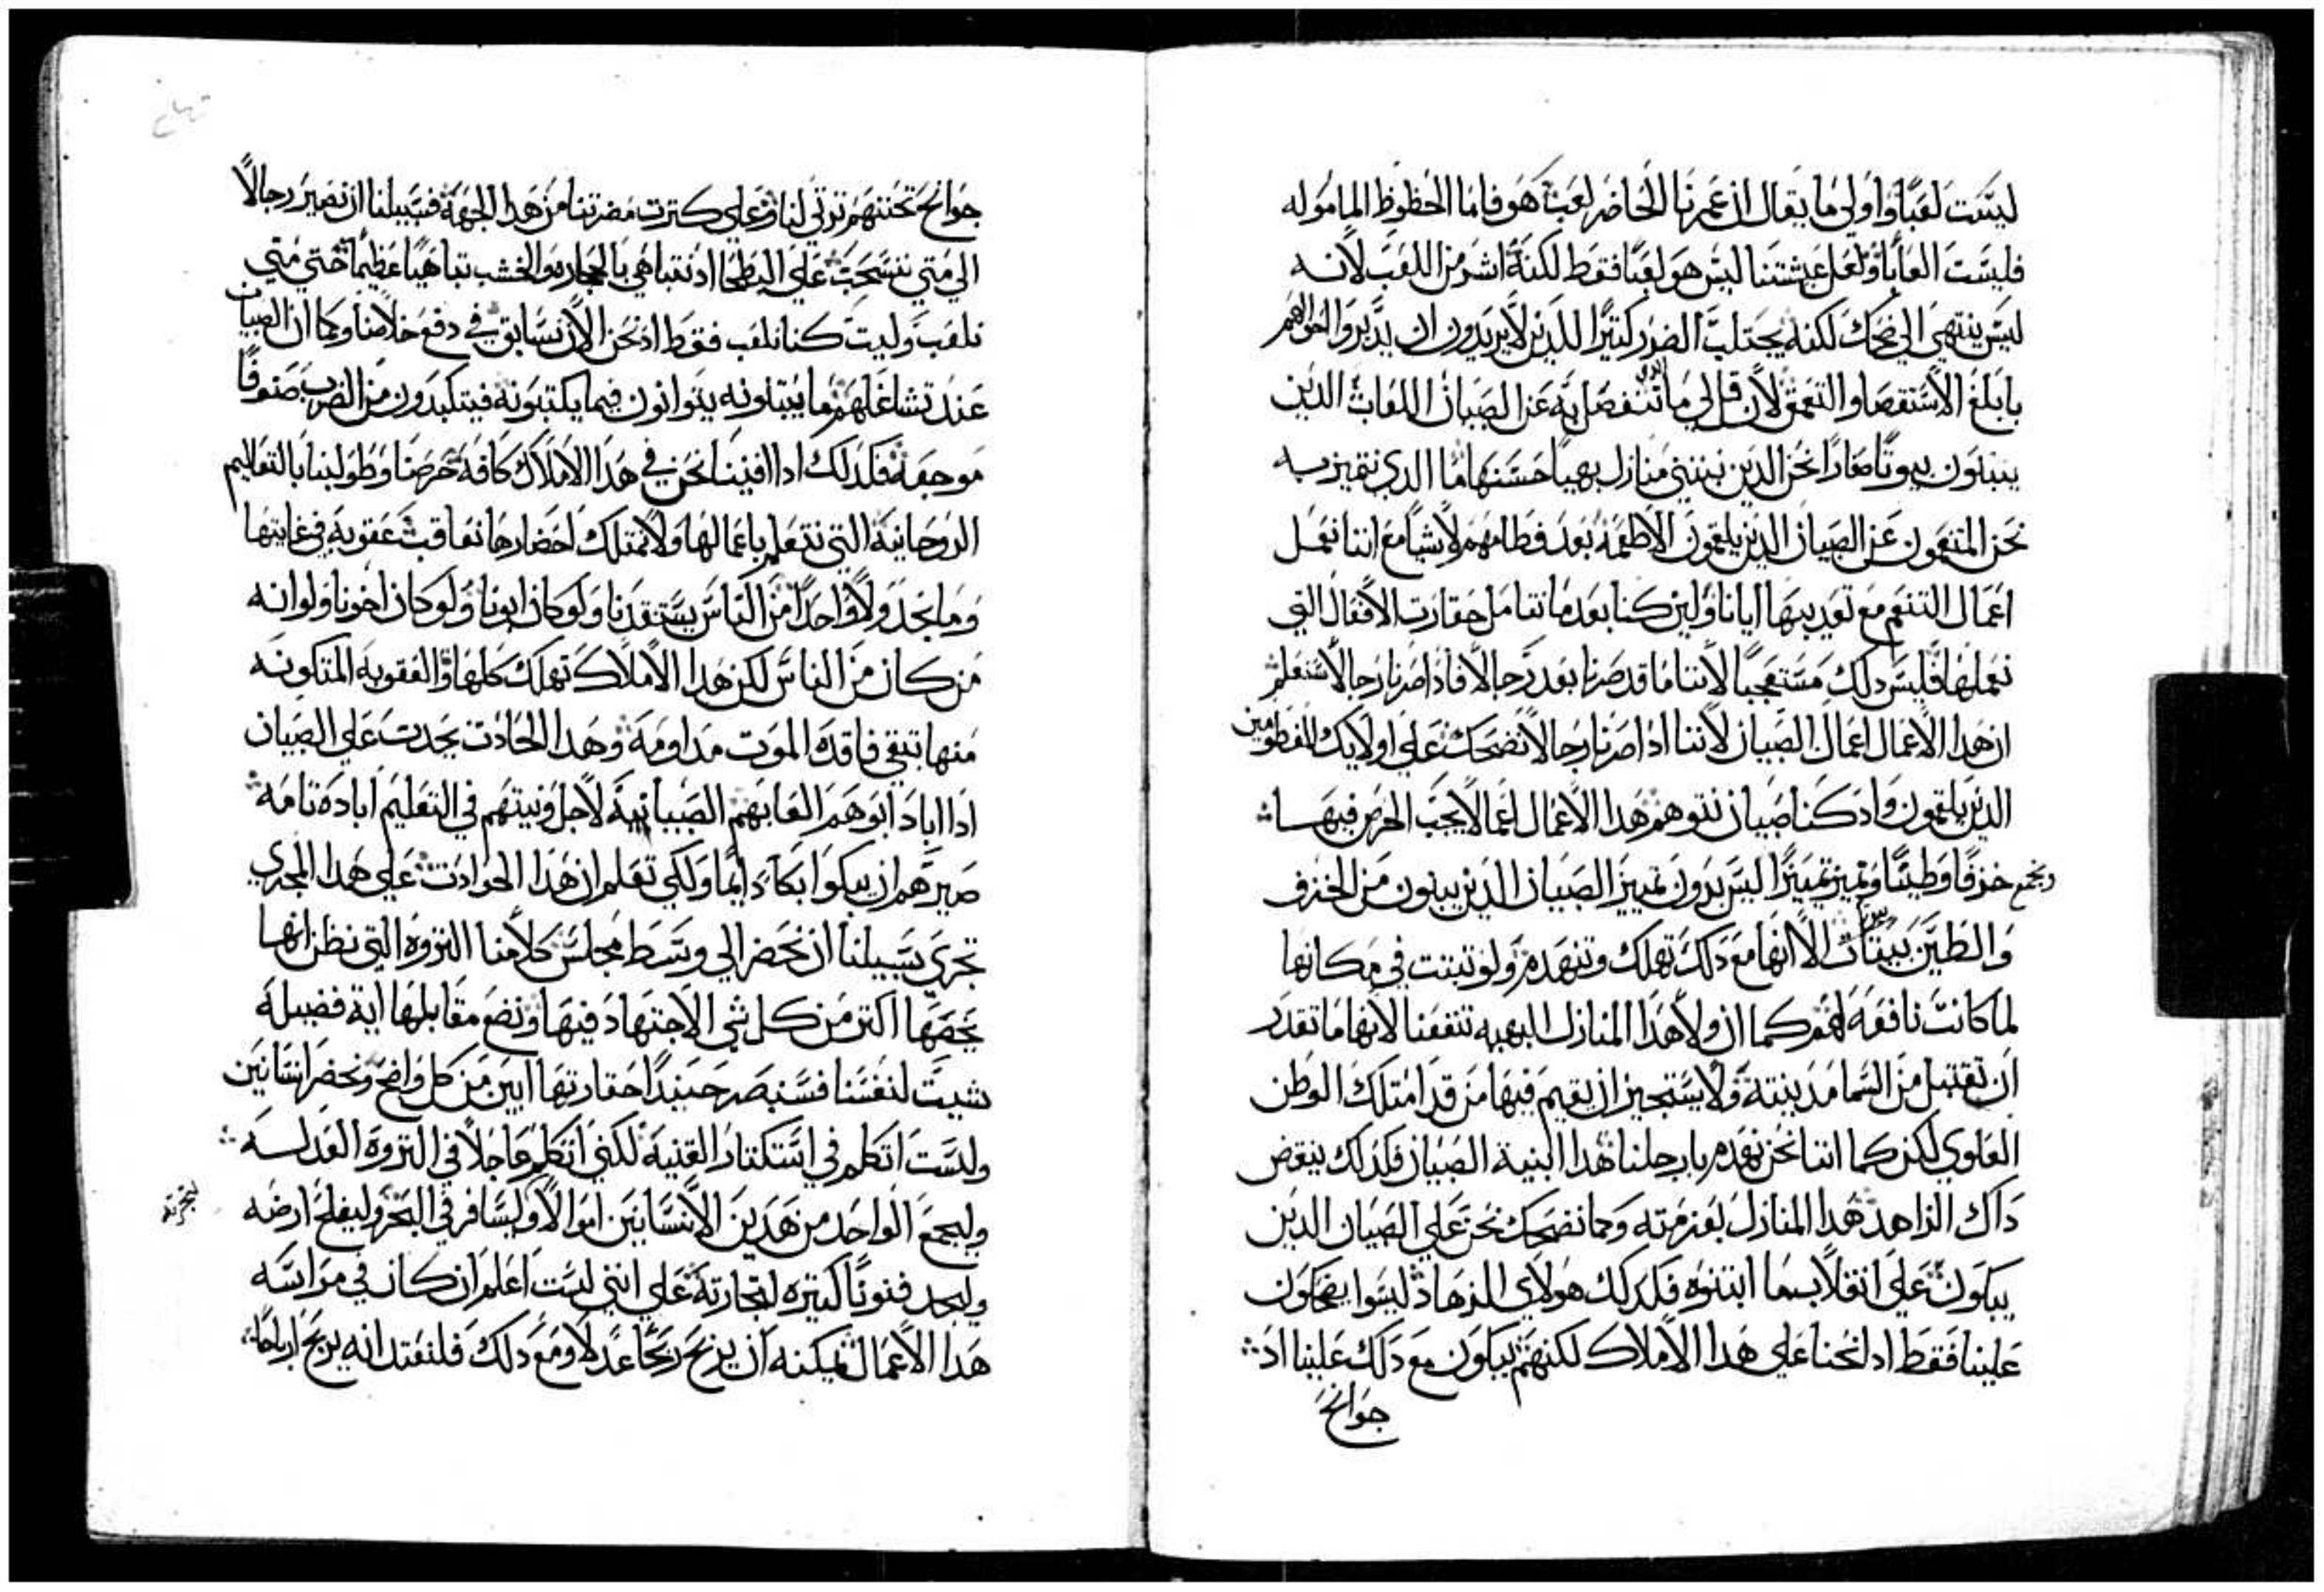 ليست لعبًا واولى ما يقال ان عمرنا الحاضر لعب هو فاما الحظوظ الماموله
فليست العابًا ولعل عيشتنا ليس هو لعبًا فقط لكنه اشر من اللعب لانه
ليس ينتهي الى ضحك لكنه يجتلب الضرر كتيرًا للدين لا يريدون ان يدبروا احوالهم
بابلغ الاستقصا والتعمق لان قل لي ما الدي ننفصل به عن الصبيان اللعاب الدين
يبنون بيوتًا صغارًا نحن الدين نبتني منازل بهيا حسنها ما الدي نتميز به
نحن المتنعمون عن الصبيان الدين يلعقون الاطعمة بعد فطامهم لا شيا مع اننا نعمل
اعمال التنعم مع تعديبها ايانا ولين كنا بعد ما نتامل حقارت الافعال التي
نعملها فليس دلك مستعجبًا لاننا ما قد صرنا بعد رجالاً فادا صرنا رجالاً سنعلم
ان هدا الاعمال اعمال الصبيان لاننا ادا صرنا رجالاً نضحك على اوليك المفطومين
الدين يلعقون واد كنا صبيان نتوهم هدا الاعمال اعمالاً يجب الحرص فيها
ونجمع خزفًا وطينًا ونميز تمييزًا ليس بدون تمييز الصبيان الدين يبنون من الخزف
والطين بيتات الا انها مع دلك تهلك وتنهدم ولو تبتت في مكانها
لما كانت نافعة لهم كما ان ولا هدا المنازل البهيه تنفعنا لانها ما تقدر
ان تقتبل من السما مدينته ولا يستجيز ان يقيم فيها من قد امتلك الوطن
العلوي لكن كما اننا نحن نهدم بارجلنا هدا ابنية الصبيان فكدلك ينقض
داك الزاهد هدا المنازل بعزمته وكما نضحك نحن على الصبيان الدين
يبكون على انقلاب ما ابتنوه فكدلك هولاي الزهاد ليسوا يضحكون
علينا فقط اد لنحنا على هدا الاملاك لكنهم يبكون مع دلك علينا اد
جوانح
جوانح تحننهم توتي لنا وعلى كترت مضرتنا من هدا الجهة فسبيلنا ان نصير رجالاً
الى متى ننسحب على البطحا اد نتباهي بالحجاره والخشب تباهيًا عظيمًا حتى متى
نلعب وليت كنا نلعب فقط اد نحن الان نسابق في دفع خلاصنا وكما ان الصبيان
عند تشاغلهم بما يبتنونه يتوانون فيما يكتبونه فيتكبدون من الضرب صنوفًا
موجعة فكدلك ادا افنينا نحن في هدا الاملاك كافة حرصنا وطولبنا بالتعاليم
الروحانية التي نتعلم باعمالها ولا نمتلك احضارها نعاقب عقوبة في غايتها
وما نجد ولا واحدًا من الناس يستنقدنا ولو كان ابونا ولو كان اخونا ولو انه
من كان من الناس لكن هدا الاملاك تهلك كلها والعقوبة المتكونه
منها تبقي فاقدة الموت مداومة وهدا الحادت يحدت على الصبيان
ادا اباد ابوهم العابهم الصبيانية لاجل ونيتهم في التعليم ابادة تامة
صيرهم ان يبكوا بكآ دايمًا ولكي تعلم ان هدا الحوادت على هدا المجرى
تجرى سبيلنا ان نحضر الى وسط مجلس كلامنا التروه التي نظن انها
يخصها اكتر من كل شي الاجتهاد فيها ونضع مقابلها اية فضيلة
شيت لنفسنا فسنبصر حينيدًا حقارتها ابين من كل واضح ونحضر انسانين
ولست اتكلم في استكتار القنية لكني اتكلم عاجلاً في التروه العدلسه
وليجمع الواحد من هدين الانسانين اموالاً وليسافر في البحر وليفلح ارضه
وليجد فنونًا كتيره لتجارته على انني لست اعلم ان كان في مراسه
هدا الاعمال يمكنه ان يربح ربحًا عدلاً ومع دلك فلنعتد انه يربح ارباحًا